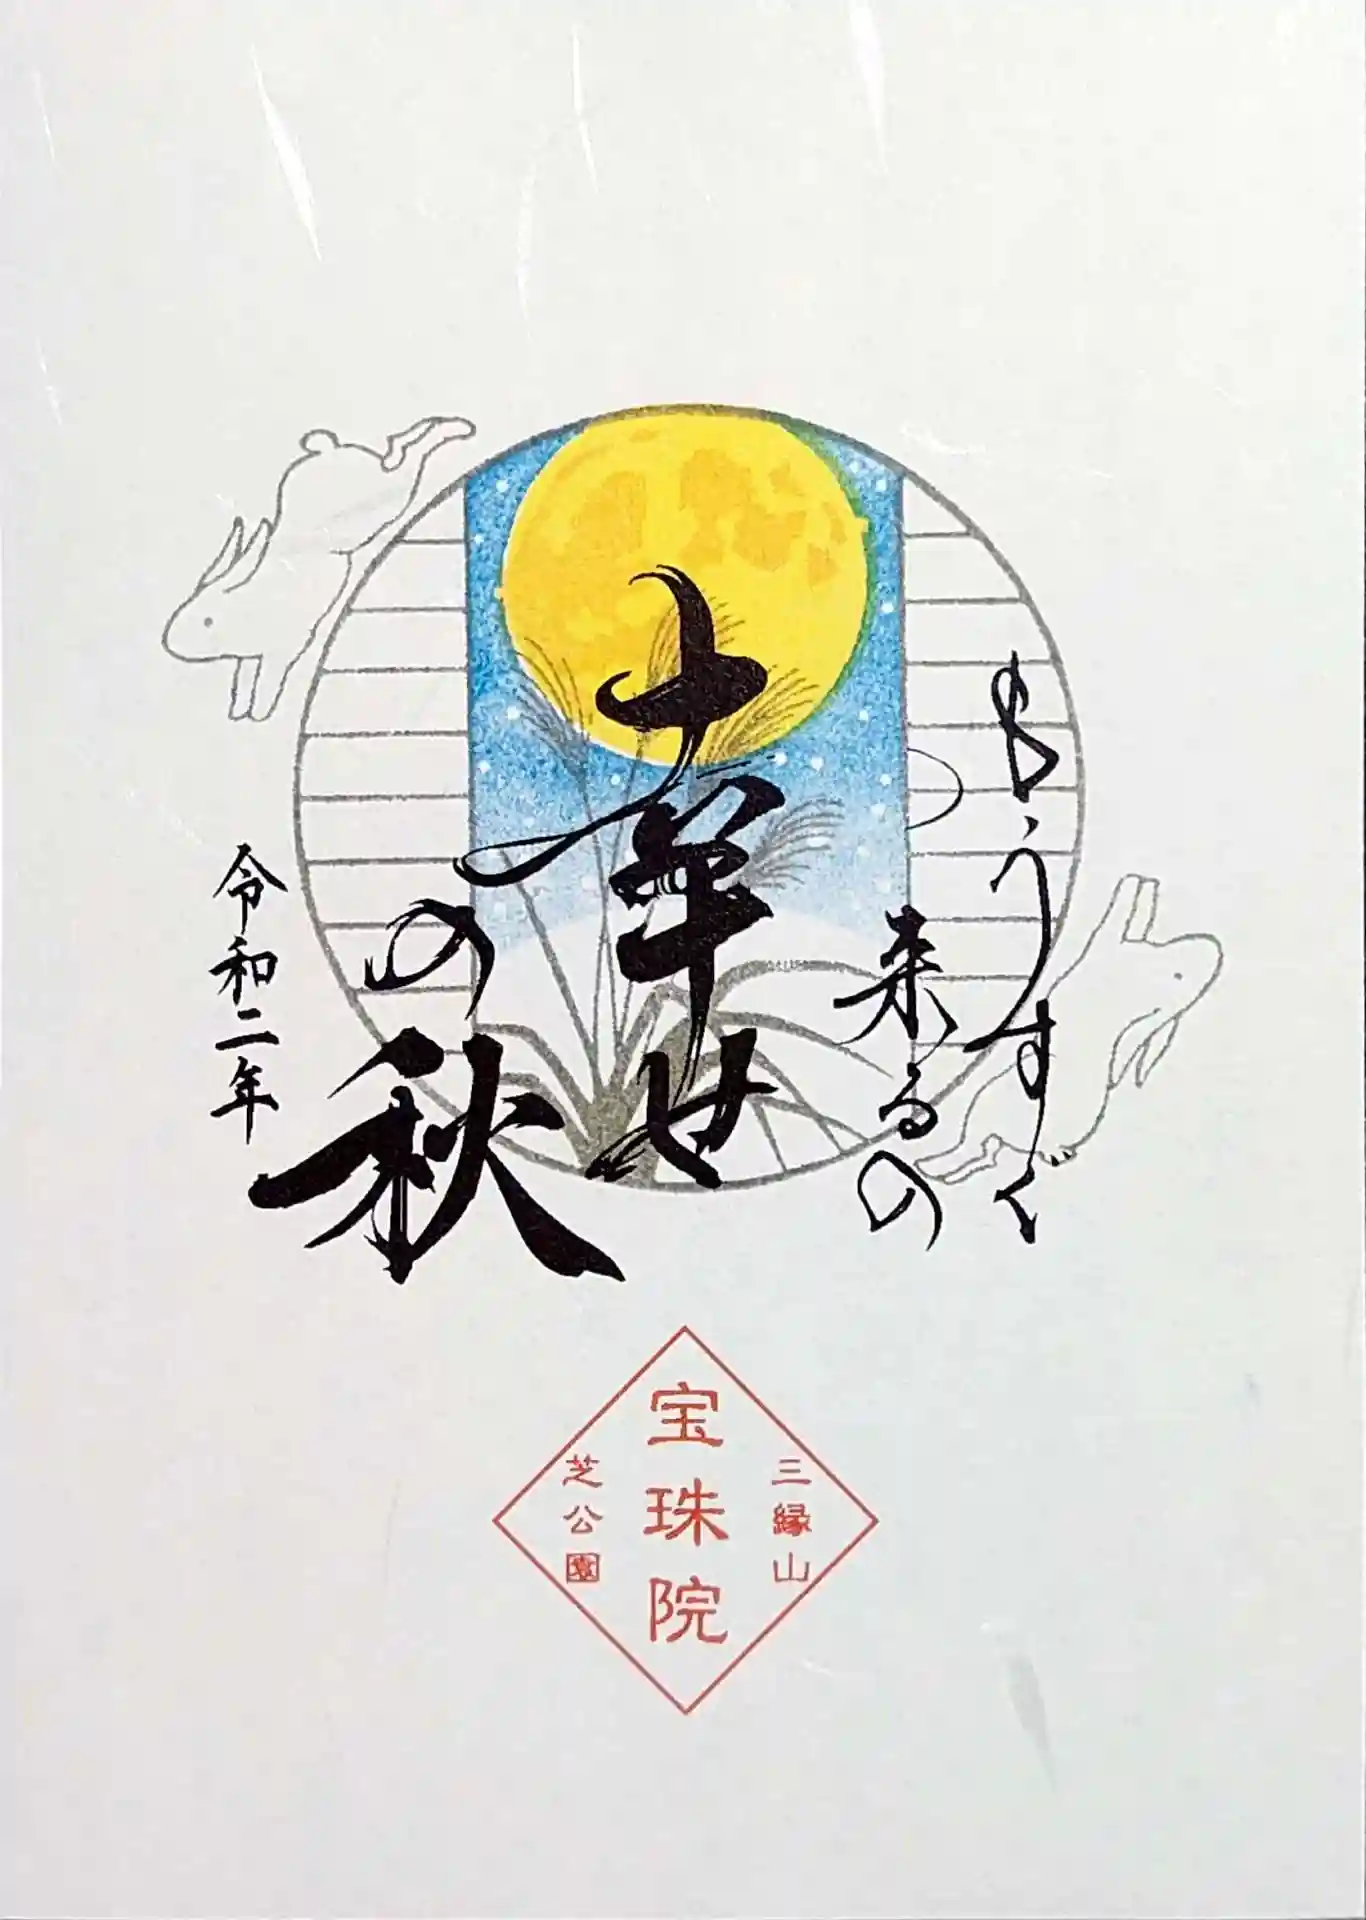 もうすぐ
来るの
十年せ
の秋
令和二年
三縁山
宝珠院
芝公園